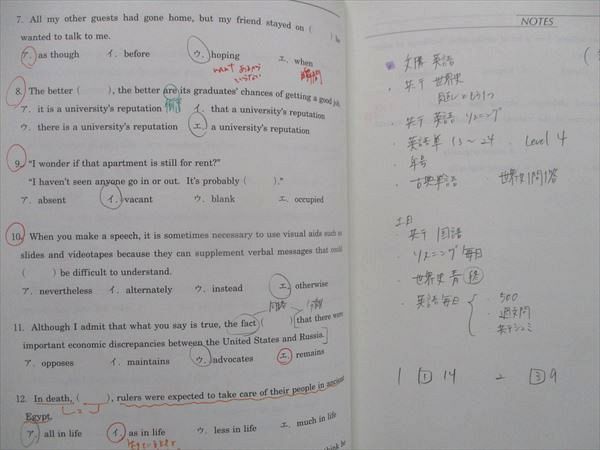 7. All my other guests had gone home, but my friend stayed on ( ) he
wanted to talk to me.
ア. as though イ. before ウ. hoping エ. when
8. The better ( ), the better are its graduates' chances of getting a good job.
ア. it is a university's reputation イ. that a university's reputation
ウ. there is a university's reputation エ. a university's reputation
9. "I wonder if that apartment is still for rent?"
"I haven't seen anyone go in or out. It's probably ( )."
ア. absent イ. vacant ウ. blank エ. occupied
10. When you make a speech, it is sometimes necessary to use visual aids such as
slides and videotapes because they can supplement verbal messages that could
( ) be difficult to understand.
ア. nevertheless イ. alternately ウ. instead エ. otherwise
同格
11. Although I admit that what you say is true, the fact ( ) that there were
important economic discrepancies between the United States and Russia.
ア. opposes イ. maintains ウ. advocates エ. remains
12. In death, ( ), rulers were expected to take care of their people in ancient
Egypt.
ア. all in life イ. as in life ウ. less in life エ. much in life
NOTES
英語
世界史
英語 リスニング
英語単 13〜24 Level 4
年号
古典単語 世界史1問1答
国語
リスニング 毎日
世界史 青
英語毎日
500
過去問
1 1 14 2 3 9